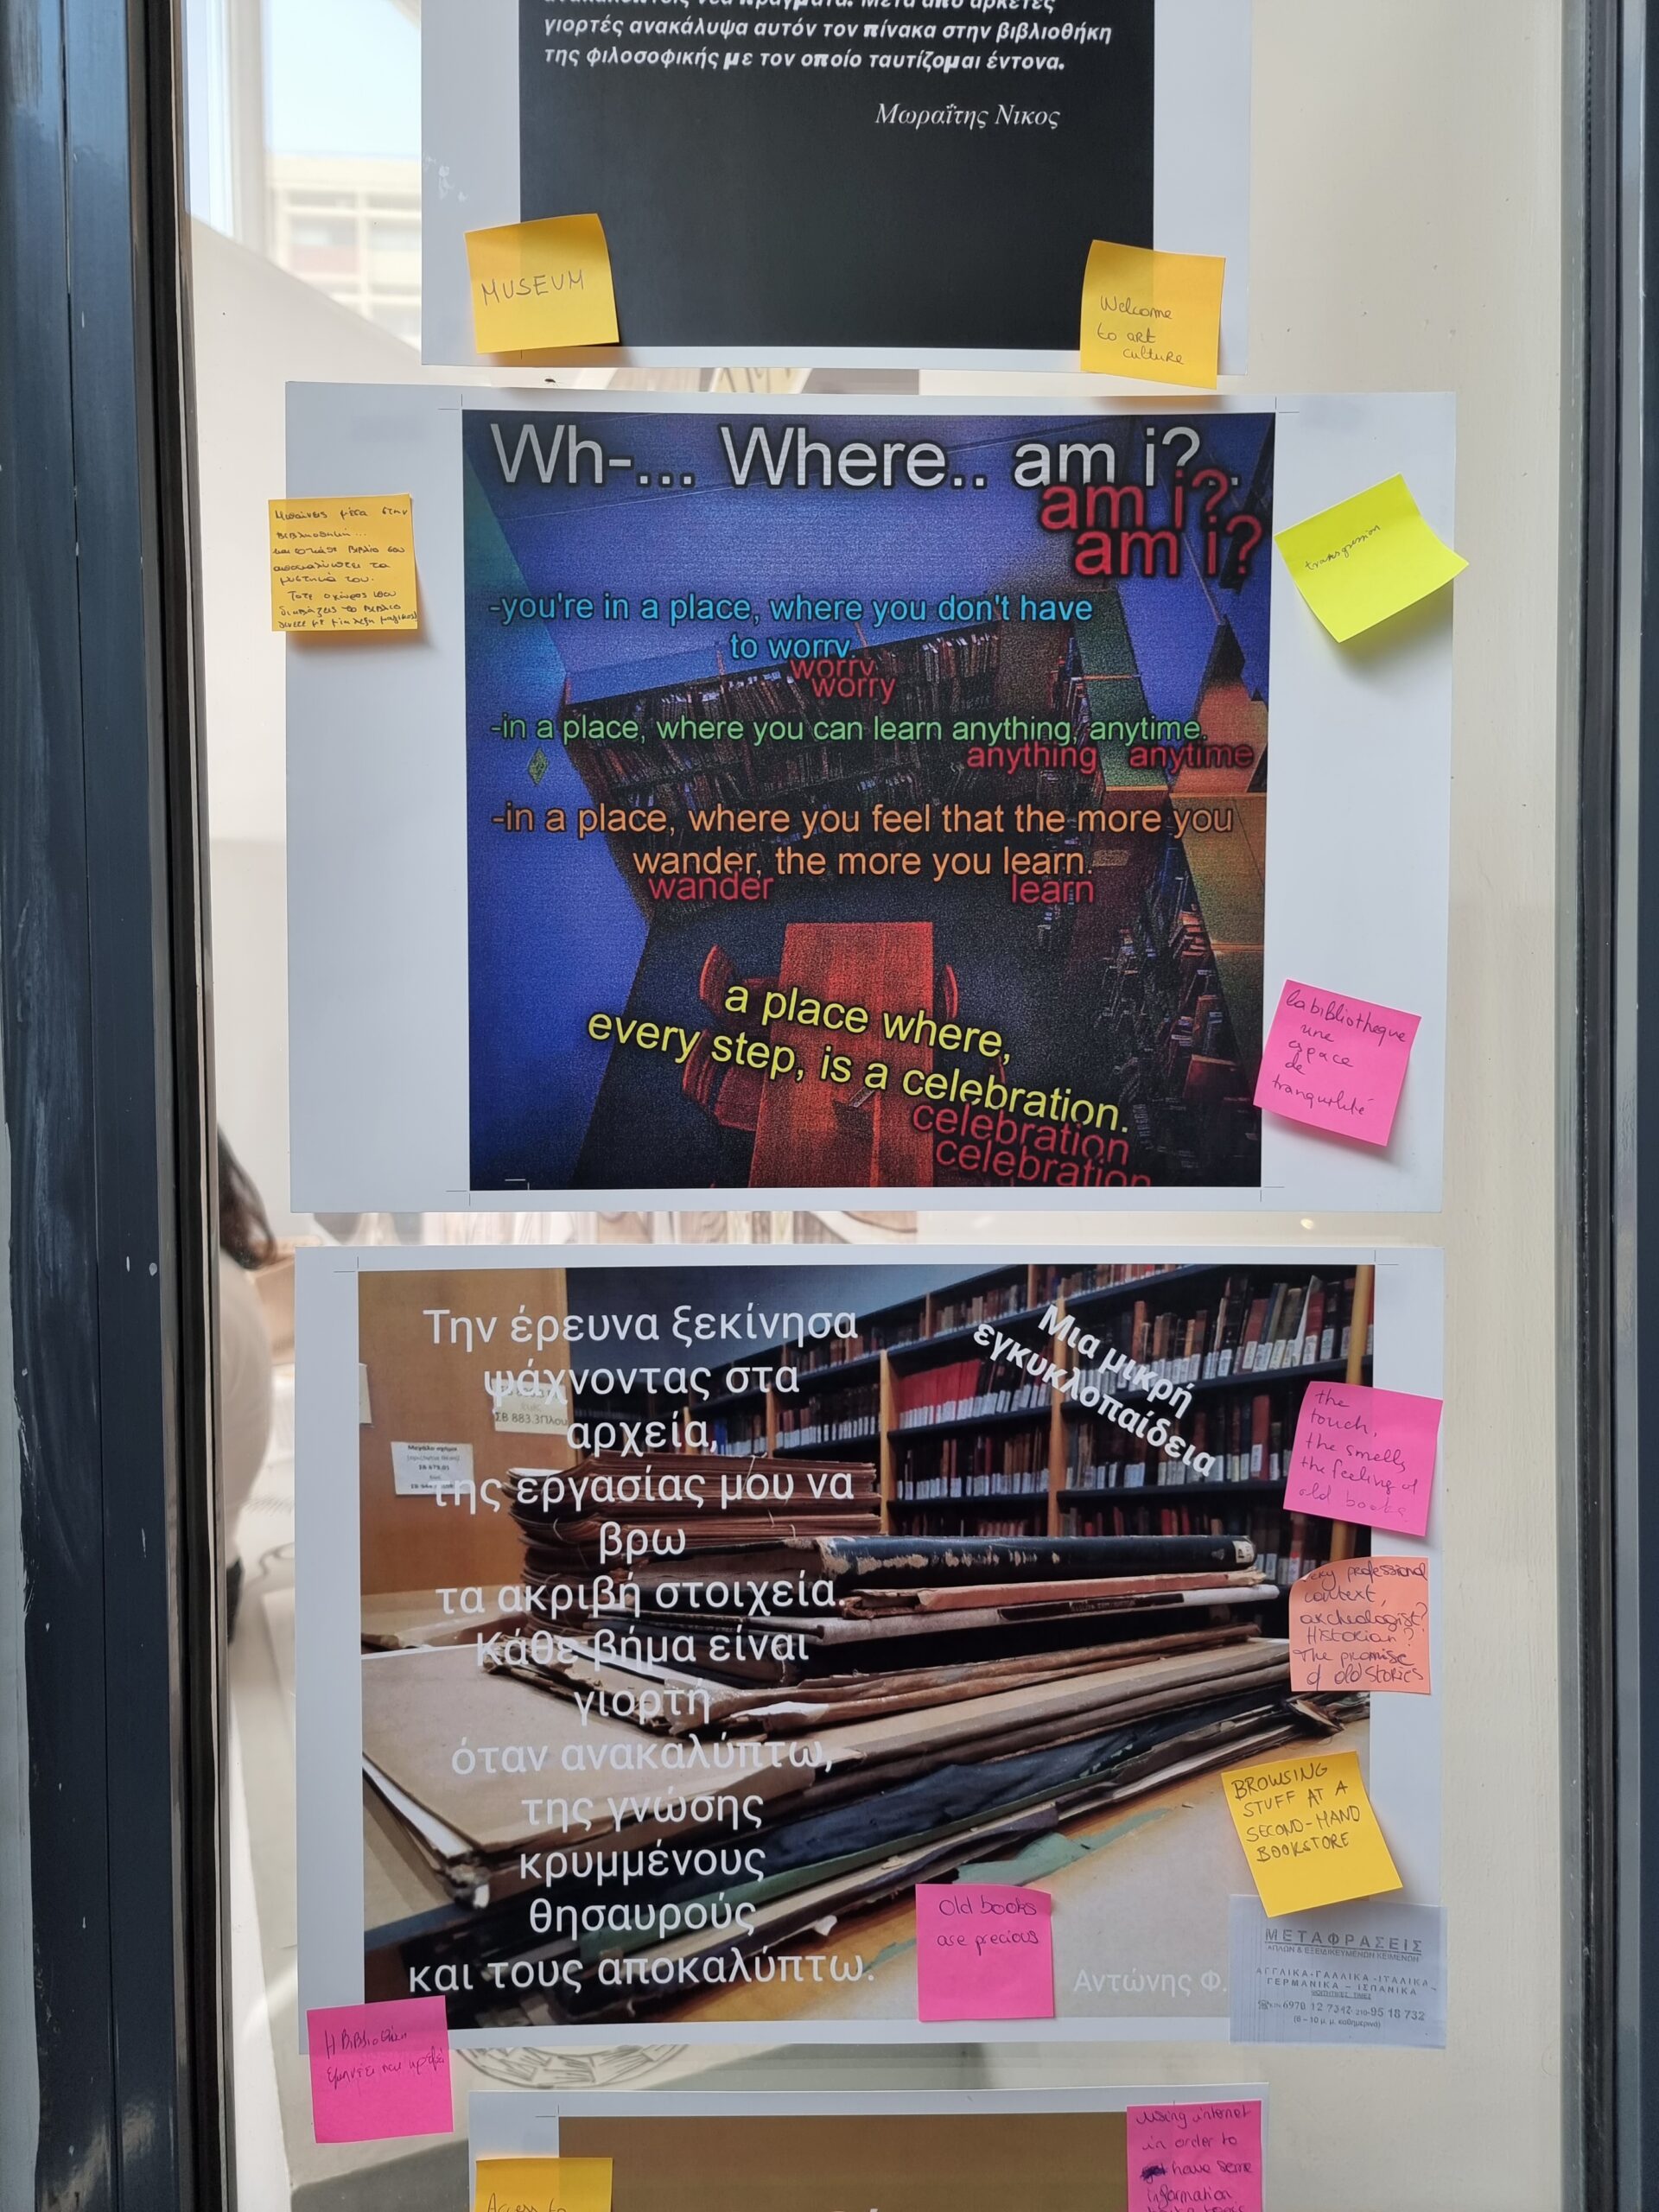 γιορτές ανακάλυψα αυτόν τον πίνακα στην βιβλιοθήκη
της φιλοσοφικής με τον οποίο ταυτίζομαι έντονα.
Μωραΐτης Νικος
MUSEUM
Welcome
to art
culture
Wh-... Where.. am i?.
am i?
am i?
-you're in a place, where you don't have
to worry.
worry
worry
-in a place, where you can learn anything, anytime.
anything anytime
-in a place, where you feel that the more you
wander, the more you learn.
wander learn
a place where,
every step, is a celebration.
celebration
celebration
μέσα στην
βιβλιοθήκη...
βιβλίο σου
τα
μυστικά του.
Τότε ο χώρος που
διαβάζεις το βιβλίο
transgression
la bibliotheque
une
espace
de
tranquilité
Την έρευνα ξεκίνησα
ψάχνοντας στα
αρχεία,
της εργασίας μου να
βρω
τα ακριβή στοιχεία.
Κάθε βήμα είναι
γιορτή
όταν ανακαλύπτω,
της γνώσης
κρυμμένους
θησαυρούς
και τους αποκαλύπτω.
Μια μικρή
εγκυκλοπαίδεια
ΣΒ 883.3Πλου
the
touch,
the smells,
the feeling of
old books
very professional
context,
archeologist?
Historian?
The promise
of old stories
BROWSING
STUFF AT A
SECOND-HAND
BOOKSTORE
Old books
are precious
Αντώνης Φ.
ΜΕΤΑΦΡΑΣΕΙΣ
ΑΠΛΩΝ & ΕΞΕΙΔΙΚΕΥΜΕΝΩΝ ΚΕΙΜΕΝΩΝ
ΑΓΓΛΙΚΑ-ΓΑΛΛΙΚΑ-ΙΤΑΛΙΚΑ
ΓΕΡΜΑΝΙΚΑ – ΙΣΠΑΝΙΚΑ
ΦΟΙΤΗΤΙΚΕΣ ΤΙΜΕΣ
6970 12 7342 210-95 18 732
(6 – 10 μ.μ. καθημερινά)
Η βιβλιοθήκη
using internet
in order to
have some
information
Access to